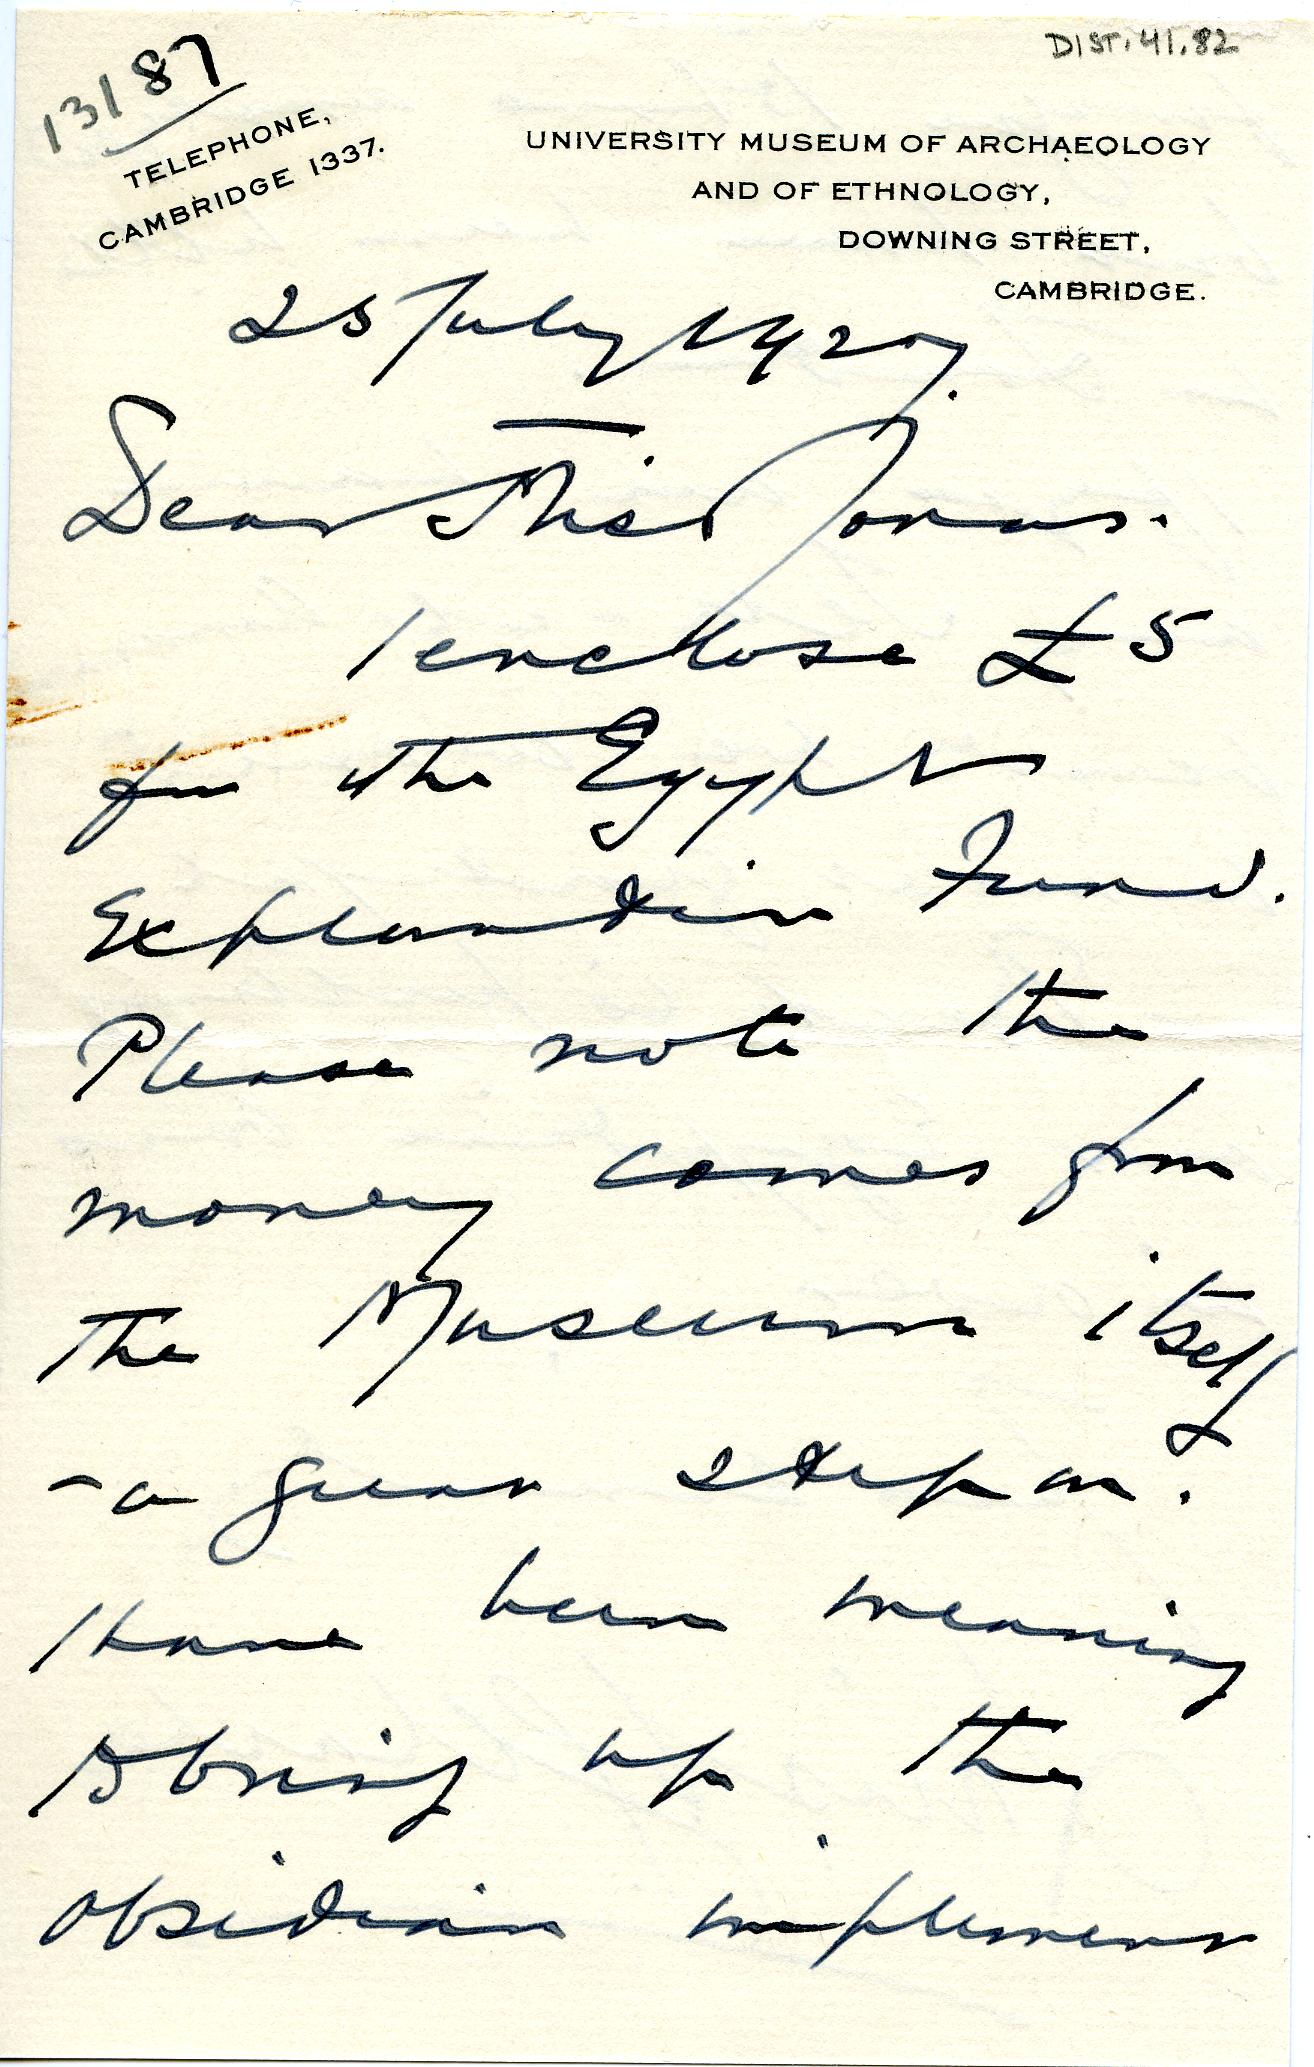 13187
DIST. 41.82
TELEPHONE,
CAMBRIDGE 1337.
UNIVERSITY MUSEUM OF ARCHAEOLOGY
AND OF ETHNOLOGY,
DOWNING STREET,
CAMBRIDGE.
25 July 1920.
Dear Miss Jonas.
I enclose £5
for the Egypt
Exploration Fund.
Please note the
money comes from
the Museum itself
- a great step on.
I have been meaning
to bring up the
obsidian implement